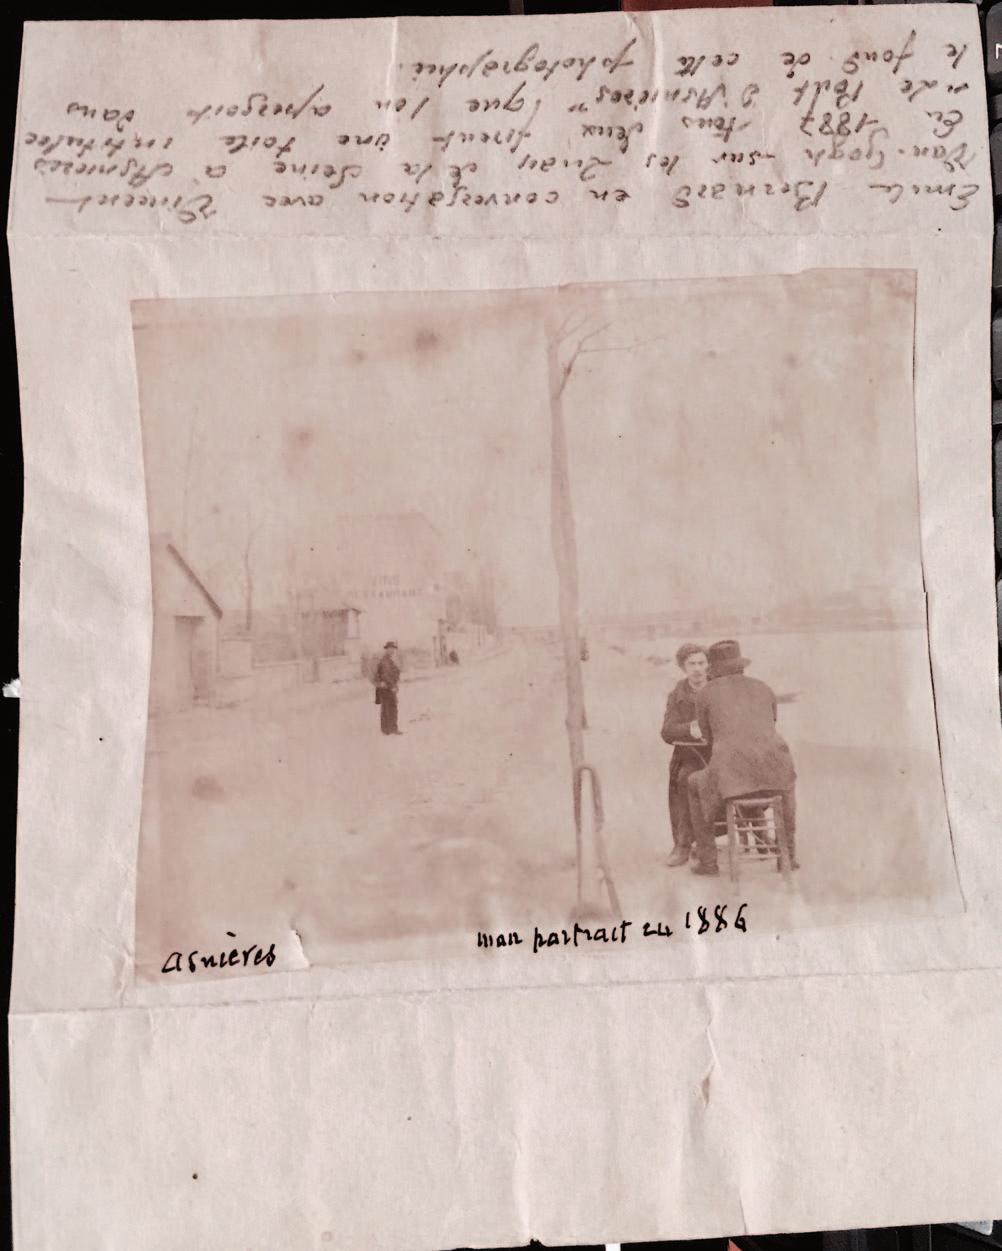 Emile Bernard en conversation avec Vincent-
Van-Gogh - sur les quais de la Seine à Asnières
En 1887 tous deux firent une toile intitulée
"le Pont d'Asnières" (que l'on aperçoit dans
le fond de cette photographie.
VINS
RESTAURANT
asnières
mon portrait en 1886